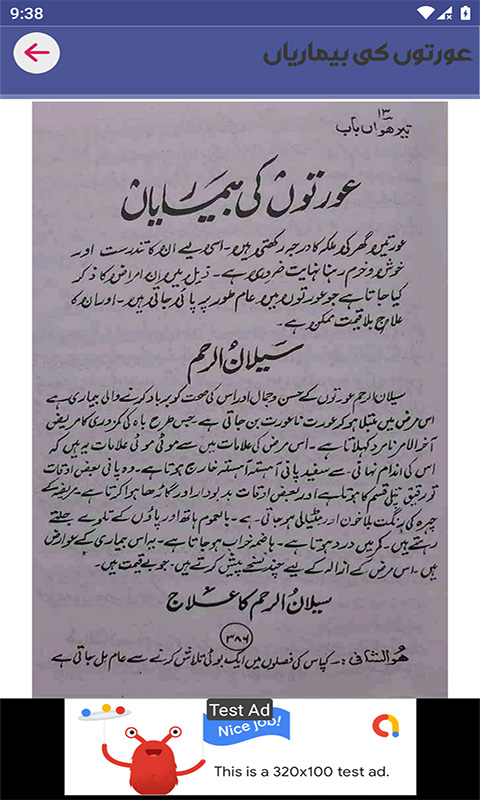 9:38
عورتوں کی بیماریاں
۱۳
تیرھواں باب
عورتوں کی بیماریاں
عورتیں گھر کی ملکہ کا درجہ رکھتی ہیں۔ اسی لیے ان کا تندرست اور
خوش و خرم رہنا نہایت ضروری ہے۔ ذیل میں ان امراض کا ذکر
کیا جاتا ہے جو عورتوں میں عام طور پر پائی جاتی ہیں۔ اور ان کا
علاج بلا قیمت ممکن ہے۔
سیلان الرحم
سیلان الرحم عورتوں کے حسن و جمال اور اس کی صحت کو برباد کرنے والی بیماری ہے
اس مرض میں مبتلا ہو کر عورت ناعورت بن جاتی ہے۔ جس طرح باہ کی کمزوری کا مریض
آخر الامر نامرد کہلاتا ہے۔ اس مرض کی علامات میں سے موٹی موٹی علامات یہ ہیں کہ
اس کی اندام نہانی سے سفید پانی آہستہ آہستہ خارج ہوتا ہے۔ وہ پانی بعض اوقات
تو رقیق پتلی قسم کا ہوتا ہے اور بعض اوقات بدبودار اور گاڑھا ہوا کرتا ہے۔ مریضہ کے
چہرہ کی رنگت بلا خون اور مٹیالی ہو جاتی ہے۔ بالعموم ہاتھ اور پاؤں کے تلوے جلتے
رہتے ہیں۔ کمر میں درد ہوتا ہے۔ ہاضمہ خراب ہو جاتا ہے۔ یہ اس بیماری کے عوارض
ہیں۔ اس مرض کے ازالہ کے لیے چند نسخے پیش کرتے ہیں۔ جو بے قیمت ہیں۔
سیلان الرحم کا علاج
۳۸۶
ھوالشافی :۔ کپاس کی فصلوں میں ایک بوٹی تلاش کرنے سے عام مل جاتی ہے
Test Ad
Nice job!
This is a 320x100 test ad.